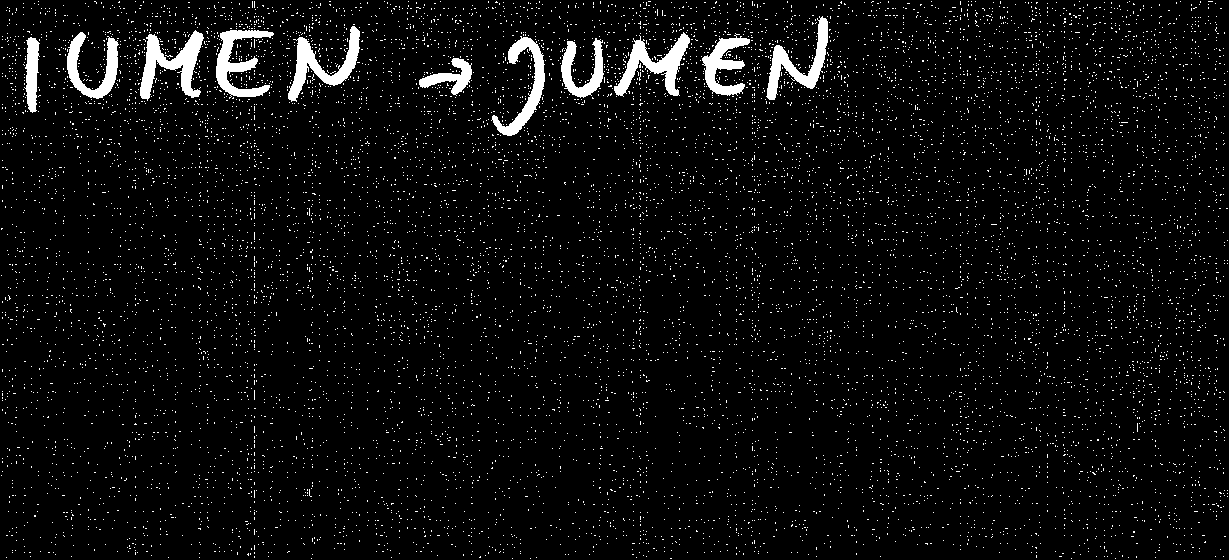 IUMEN → JUMEN